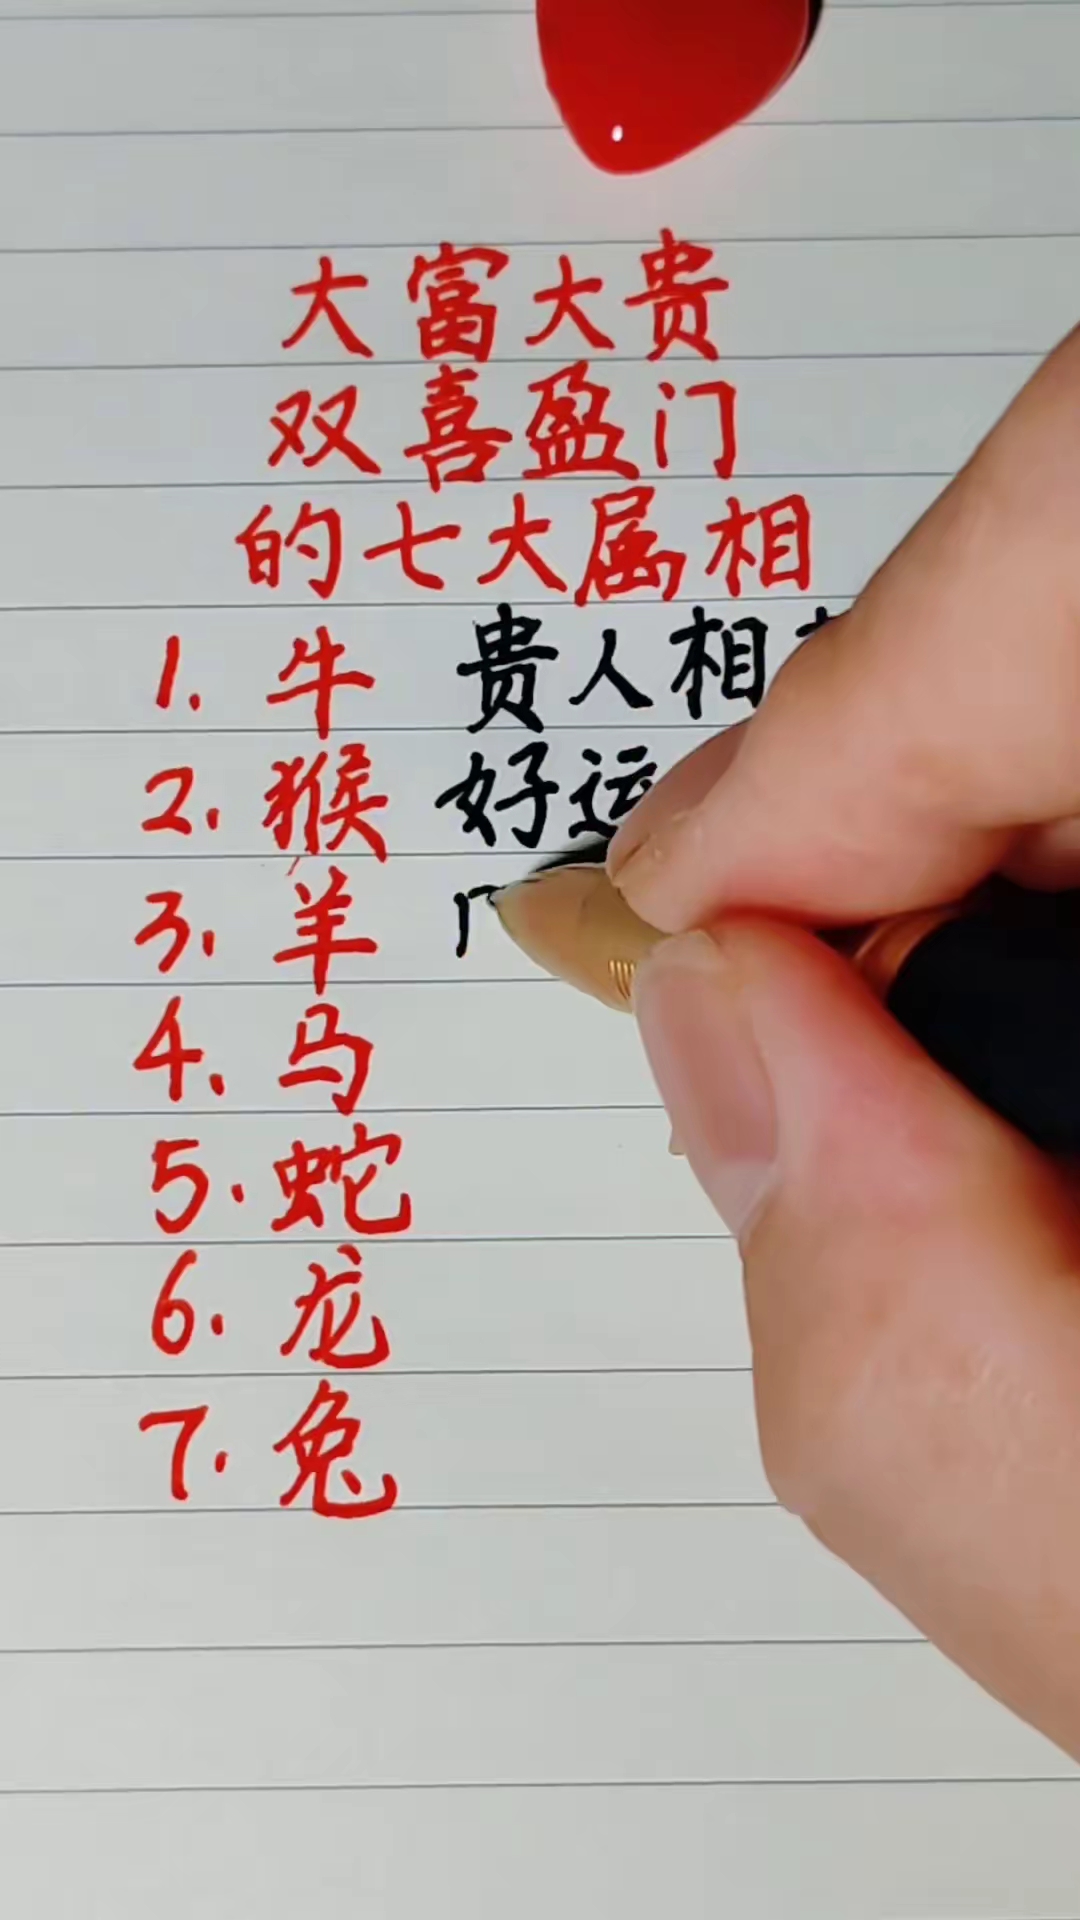 大富大贵
双喜盈门
的七大属相
1. 牛 贵人相
2. 猴 好运
3. 羊
4. 马
5. 蛇
6. 龙
7. 兔